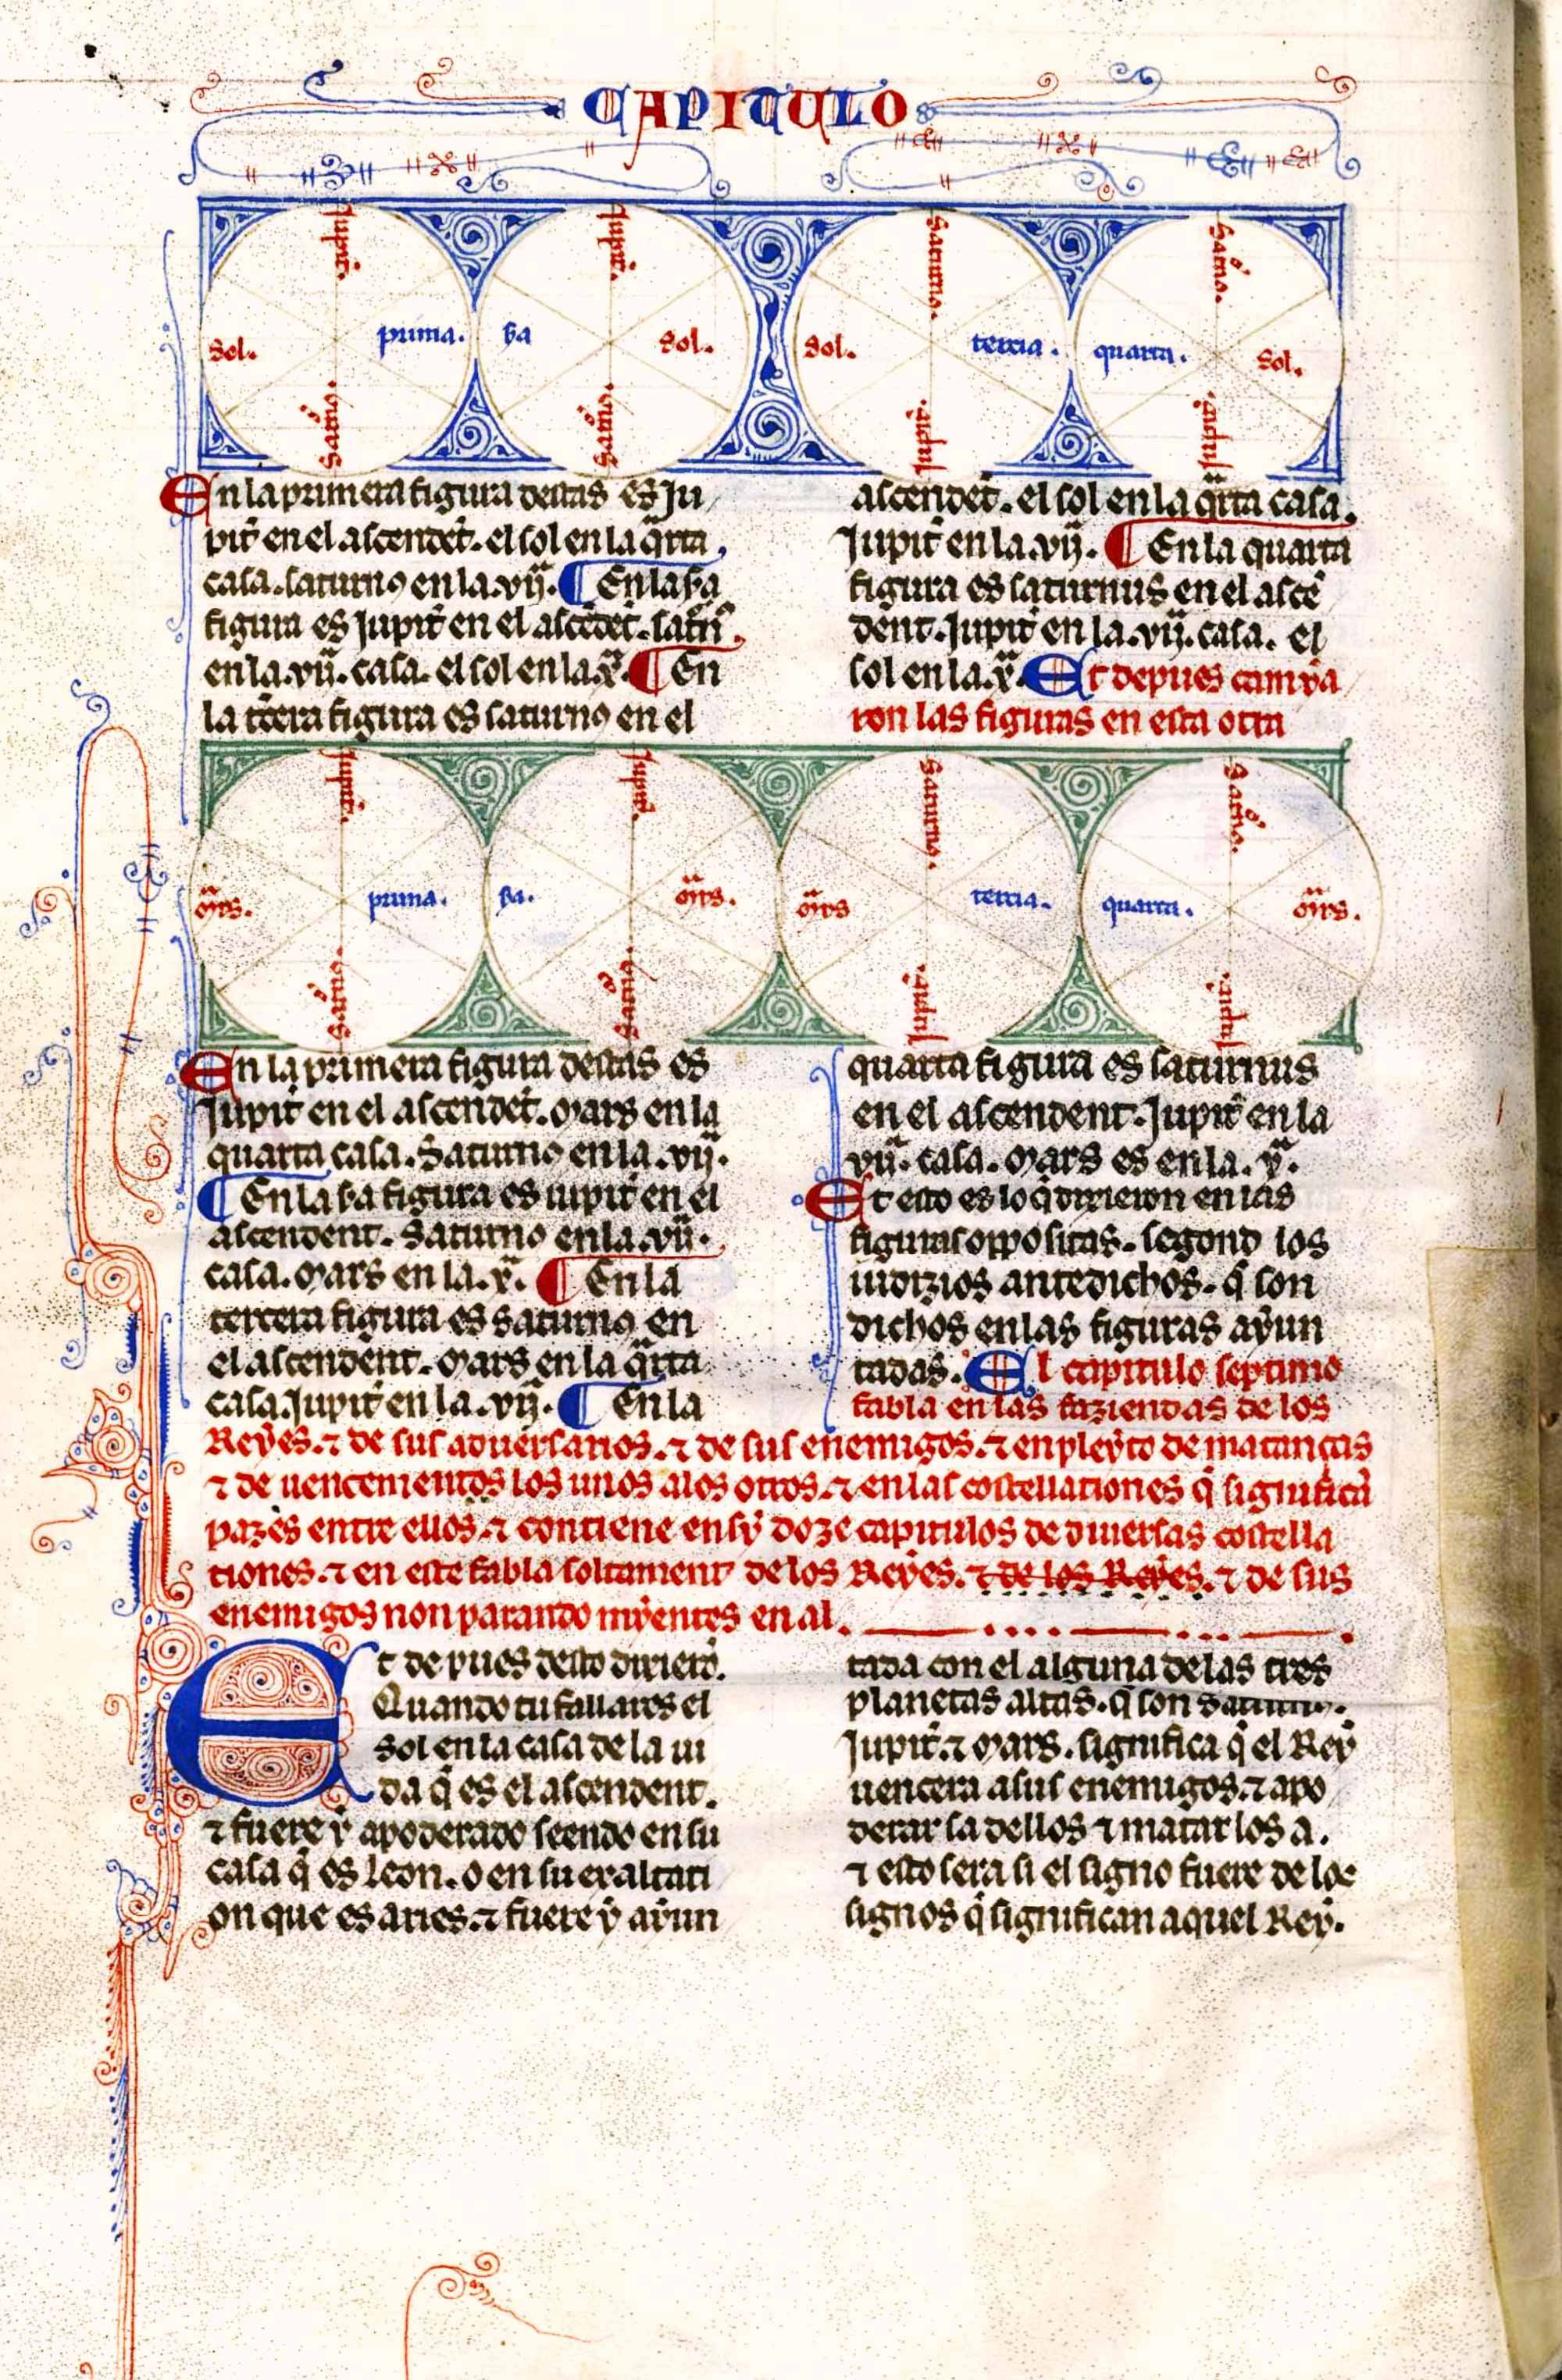 CAPITULO
Jupit̉. Jupit̉. Saturno. Sat̉no.
Sol. prima. ẞa Sol. Sol. tercia. quarta. Sol.
Sat̉no. Sat̉no. Jupit̉. Jupit̉.
En la primera figura destas es Ju
pit̉ en el ascendẽt. el sol en la q̃rta
casa. saturno en la .vijª. ¶ En la ẞa
figura es Jupit̉ en el ascẽdẽt. sat̉nº
en la .vijª. casa. el sol en la .xª. ¶ En
la t̉cera figura es saturno en el
ascendẽt. el sol en la q̃rta casa.
Jupit̉ en la .vij. ¶ En la quarta
figura es saturnus en el ascẽ
dent. Jupit̉ en la .vijª. casa. el
sol en la .xª. Et depues camẏa
ron las figuras en esta otra
Jupit̉. Jupit̉. Saturno. Sat̉no.
Mars. prima. ẞa. Mars. Mars tercia. quarta. Mars.
Sat̉no. Sat̉no. Jupit̉. Jupit̉.
En la primera figura destas es
Jupit̉ en el ascendẽt. Mars en la
quarta casa. Saturno en la .vijª.
¶ En la ẞa figura es iupit̉ en el
ascendent. Saturno en la .vijª.
casa. Mars en la .xª. ¶ En la
tercera figura es saturno en
el ascendent. Mars en la q̃rta
casa. Jupit̉ en la .vijª. ¶ En la
quarta figura es saturnus
en el ascendent. Jupit̉ en la
vijª. casa. Mars es en la .xª.
Et esto es lo q̃ dixieron en las
figuras oppositas. segond los
iudizios antedichos. q̃ son
dichos en las figuras aẏun
tadas. El capitulo septimo
fabla en las faziendas de los
Reẏes. ⁊ de sus aduersarios. ⁊ de sus enemigos. ⁊ en pleẏto de matanças
⁊ de uencemientos los unos alos otros. ⁊ en las costellationes q̃ significã
pazes entre ellos. ⁊ contiene en sẏ doze capitulos de diuersas costella
tiones. ⁊ en este fabla soltament de los Reẏes. ⁊ de los Reẏes. ⁊ de sus
enemigos non parando mẏentes en al.
Et depues desto dixierõ.
Quando tu fallares el
Sol en la casa de la ui
da q̃ es el ascendent.
⁊ fuere ẏ apoderado seendo en su
casa q̃ es leon. o en su exaltati
on que es aries. ⁊ fuere ẏ aẏun
tada con el alguna de las tres
planetas altas. q̃ son Saturno.
Jupit̉. ⁊ Mars. significa q̃ el Reẏ
uencera a sus enemigos. ⁊ apo
derar sa dellos ⁊ matar los a.
⁊ esto sera si el signo fuere de los
signos q̃ significan aquel Reẏ.